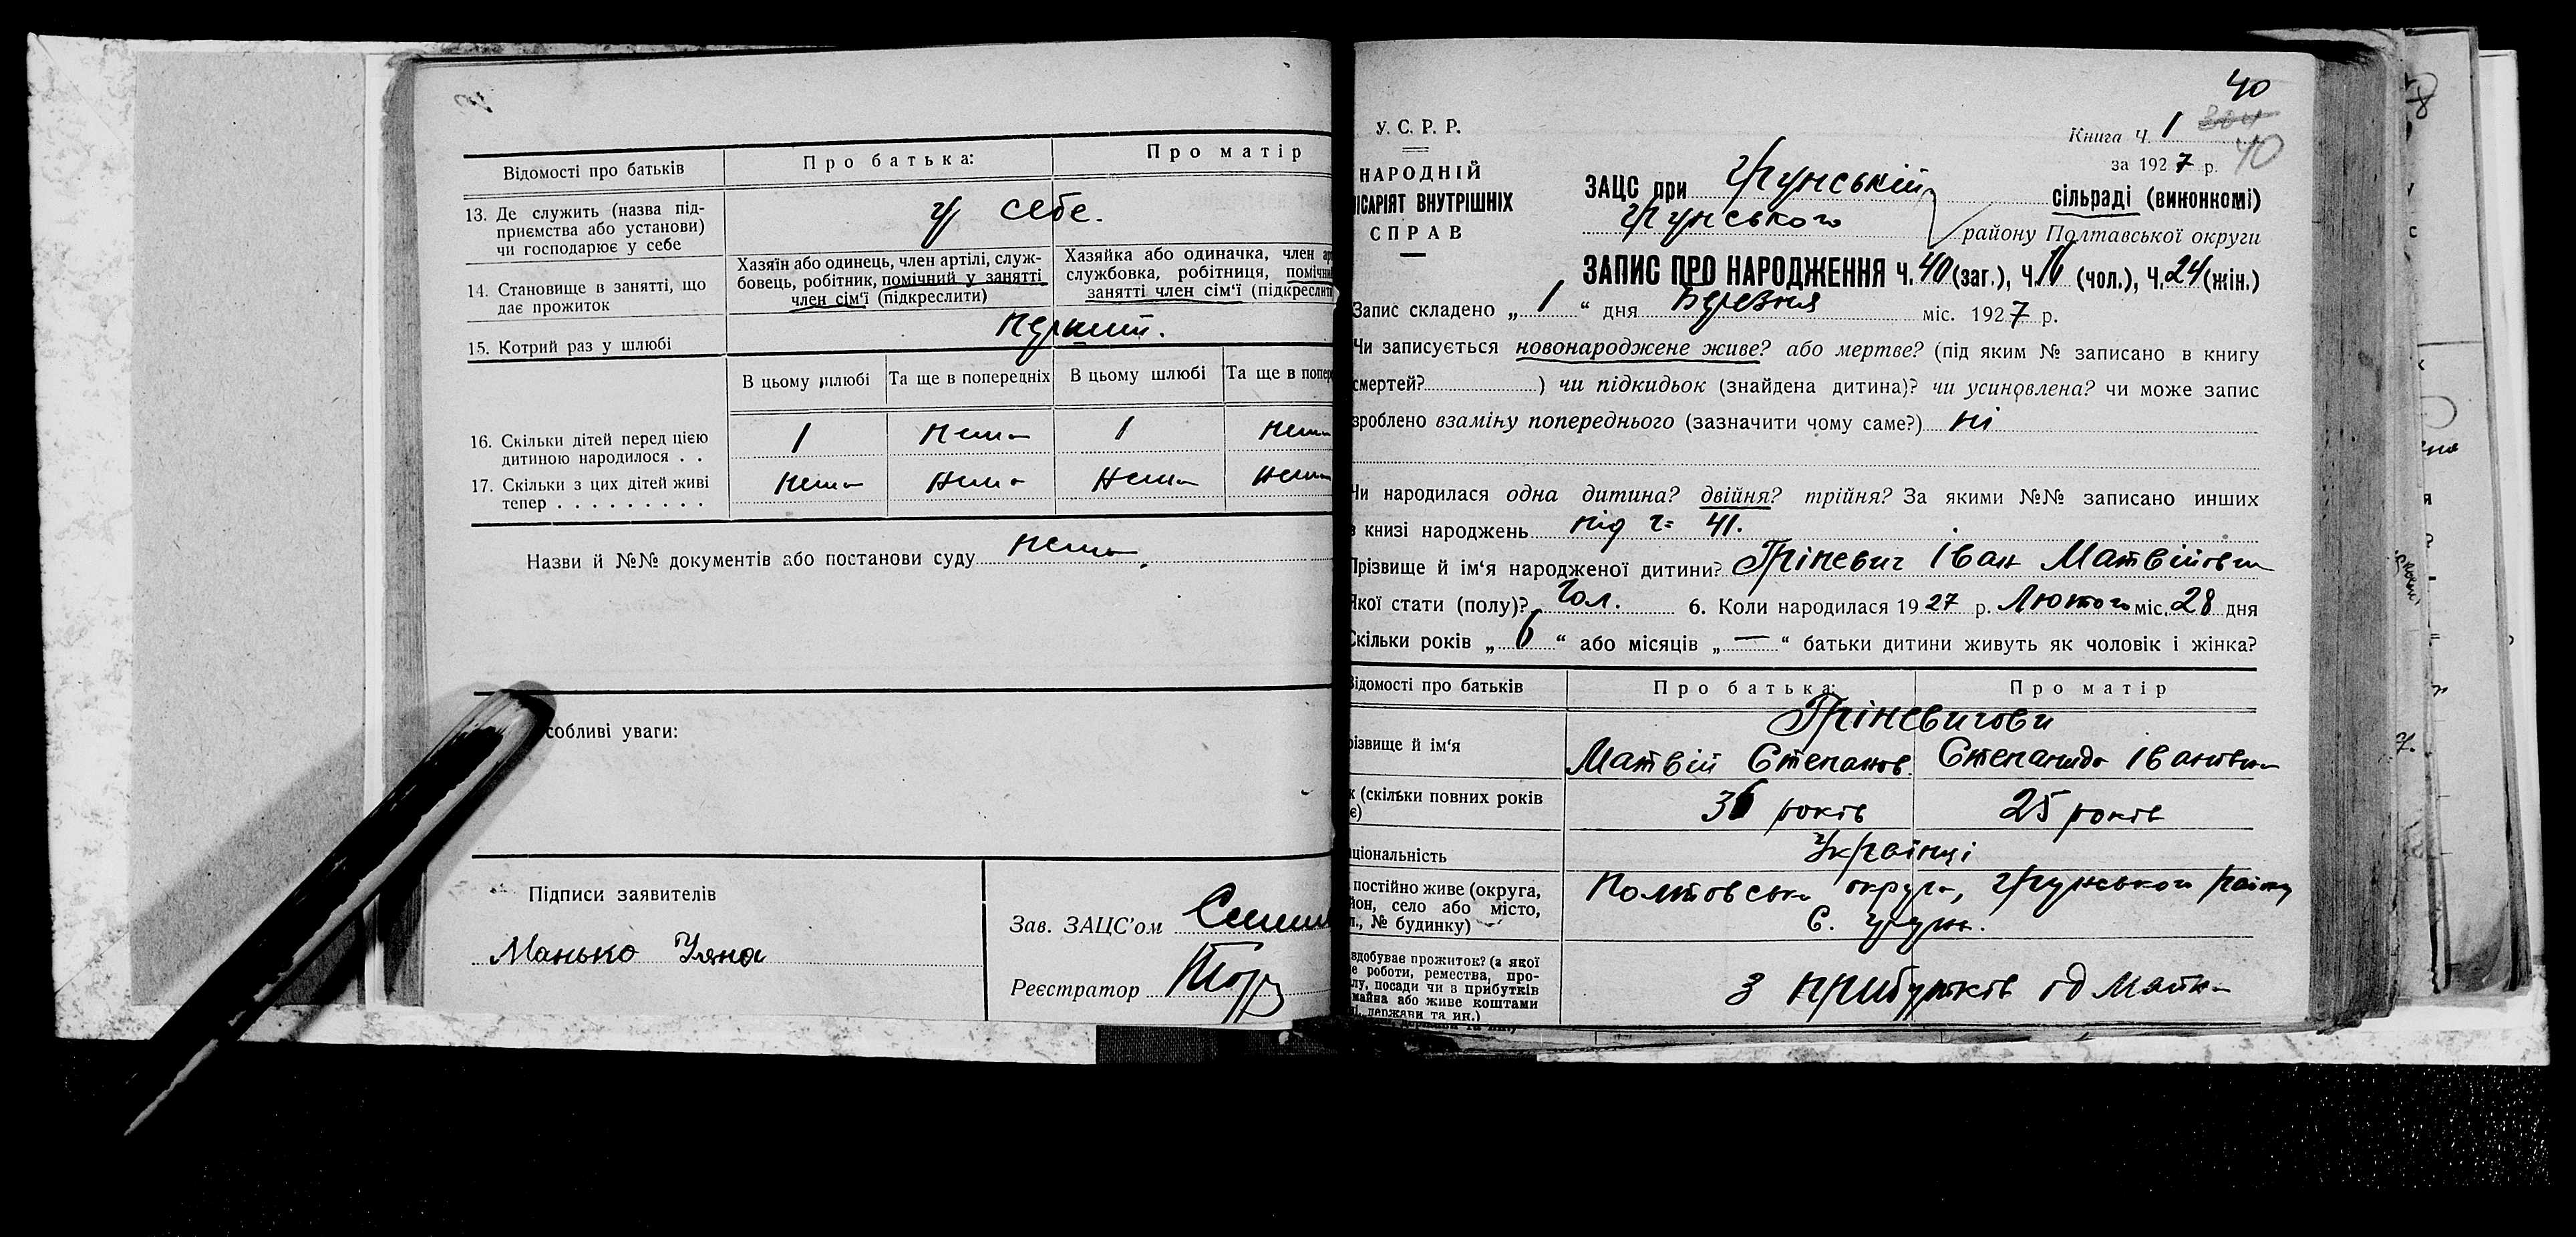 Відомості про батьків
Про батька:
Про матір
13. Де служить (назва під-
приємства або установи)
чи господарює у себе
У себе.
14. Становище в занятті, що
дає прожиток
Хазяїн або одинець, член артілі, служ-
бовець, робітник, помічний у занятті
член сім'ї (підкреслити)
Хазяйка або одиначка, член ар
службовка, робітниця, помічни
занятті член сім'ї (підкреслит
15. Котрий раз у шлюбі
перший.
В цьому шлюбі
Та ще в попередніх
В цьому шлюбі
Та ще в попере
16. Скільки дітей перед цією
дитиною народилося . .
1 нема 1 нема
17. Скільки з цих дітей живі
тепер . . . . . . . . .
нема нема нема нема
Назви й №№ документів або постанови суду нема.
собливі уваги:
Підписи заявителів
Манько Уяна
Зав. ЗАЦС'ом
Реєстратор
40
У. С. Р. Р.
НАРОДНІЙ
ІСАРІЯТ ВНУТРІШНІХ
СПРАВ
Книга Ч. 1
40
за 1927 р.
ЗАЦС при Грунській сільраді (виконкомі)
Грунського району Полтавської округи
ЗАПИС ПРО НАРОДЖЕННЯ Ч. 40 (заг.), Ч. 16 (чол.), Ч. 24 (жін.)
Запис складено „ 1 “ дня Березня міс. 1927 р.
Чи записується новонароджене живе? або мертве? (під яким № записано в книгу
смертей? ) чи підкидьок (знайдена дитина)? чи усиновлена? чи може запис
зроблено взаміну попереднього (зазначити чому саме?) ні
Чи народилася одна дитина? двійня? трійня? За якими №№ записано инших
в книзі народжень під ч= 41.
Прізвище й ім'я народженої дитини? Гріневич Іван Матвійович
Якої стати (полу)? Чол. 6. Коли народилася 1927 р. Лютого міс. 28 дня
Скільки років „ 6 “ або місяців „ — “ батьки дитини живуть як чоловік і жінка?
Відомості про батьків
Про батька:
Про матір
Гріневичови
різвище й ім'я
Матвій Степанов.
Степанида Іванівна
к (скільки повних років
є)
36 років
25 років
ціональність
Українці
постійно живе (округа,
йон, село або місто,
л., № будинку)
Полтовська округа, Грунського району
С. Грунь.
здобуває прожиток? (з якої
е роботи, ремества, про-
лу, посади чи з прибутків
майна або живе коштами
ї, держави та ин.)
З прибутків од майна